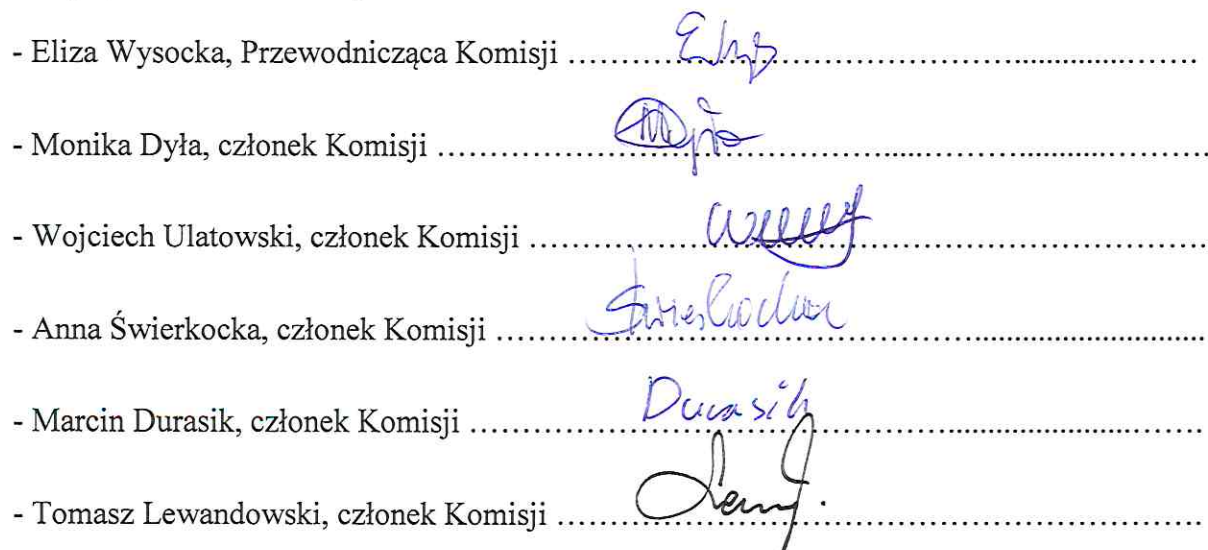 - Eliza Wysocka, Przewodnicząca Komisji ……………………………………………
- Monika Dyła, członek Komisji ……………………………………………
- Wojciech Ulatowski, członek Komisji ……………………………………………
- Anna Świerkocka, członek Komisji ……………………………………………
Świerkocka
- Marcin Durasik, członek Komisji ……………………………………………
Durasik
- Tomasz Lewandowski, członek Komisji ……………………………………………